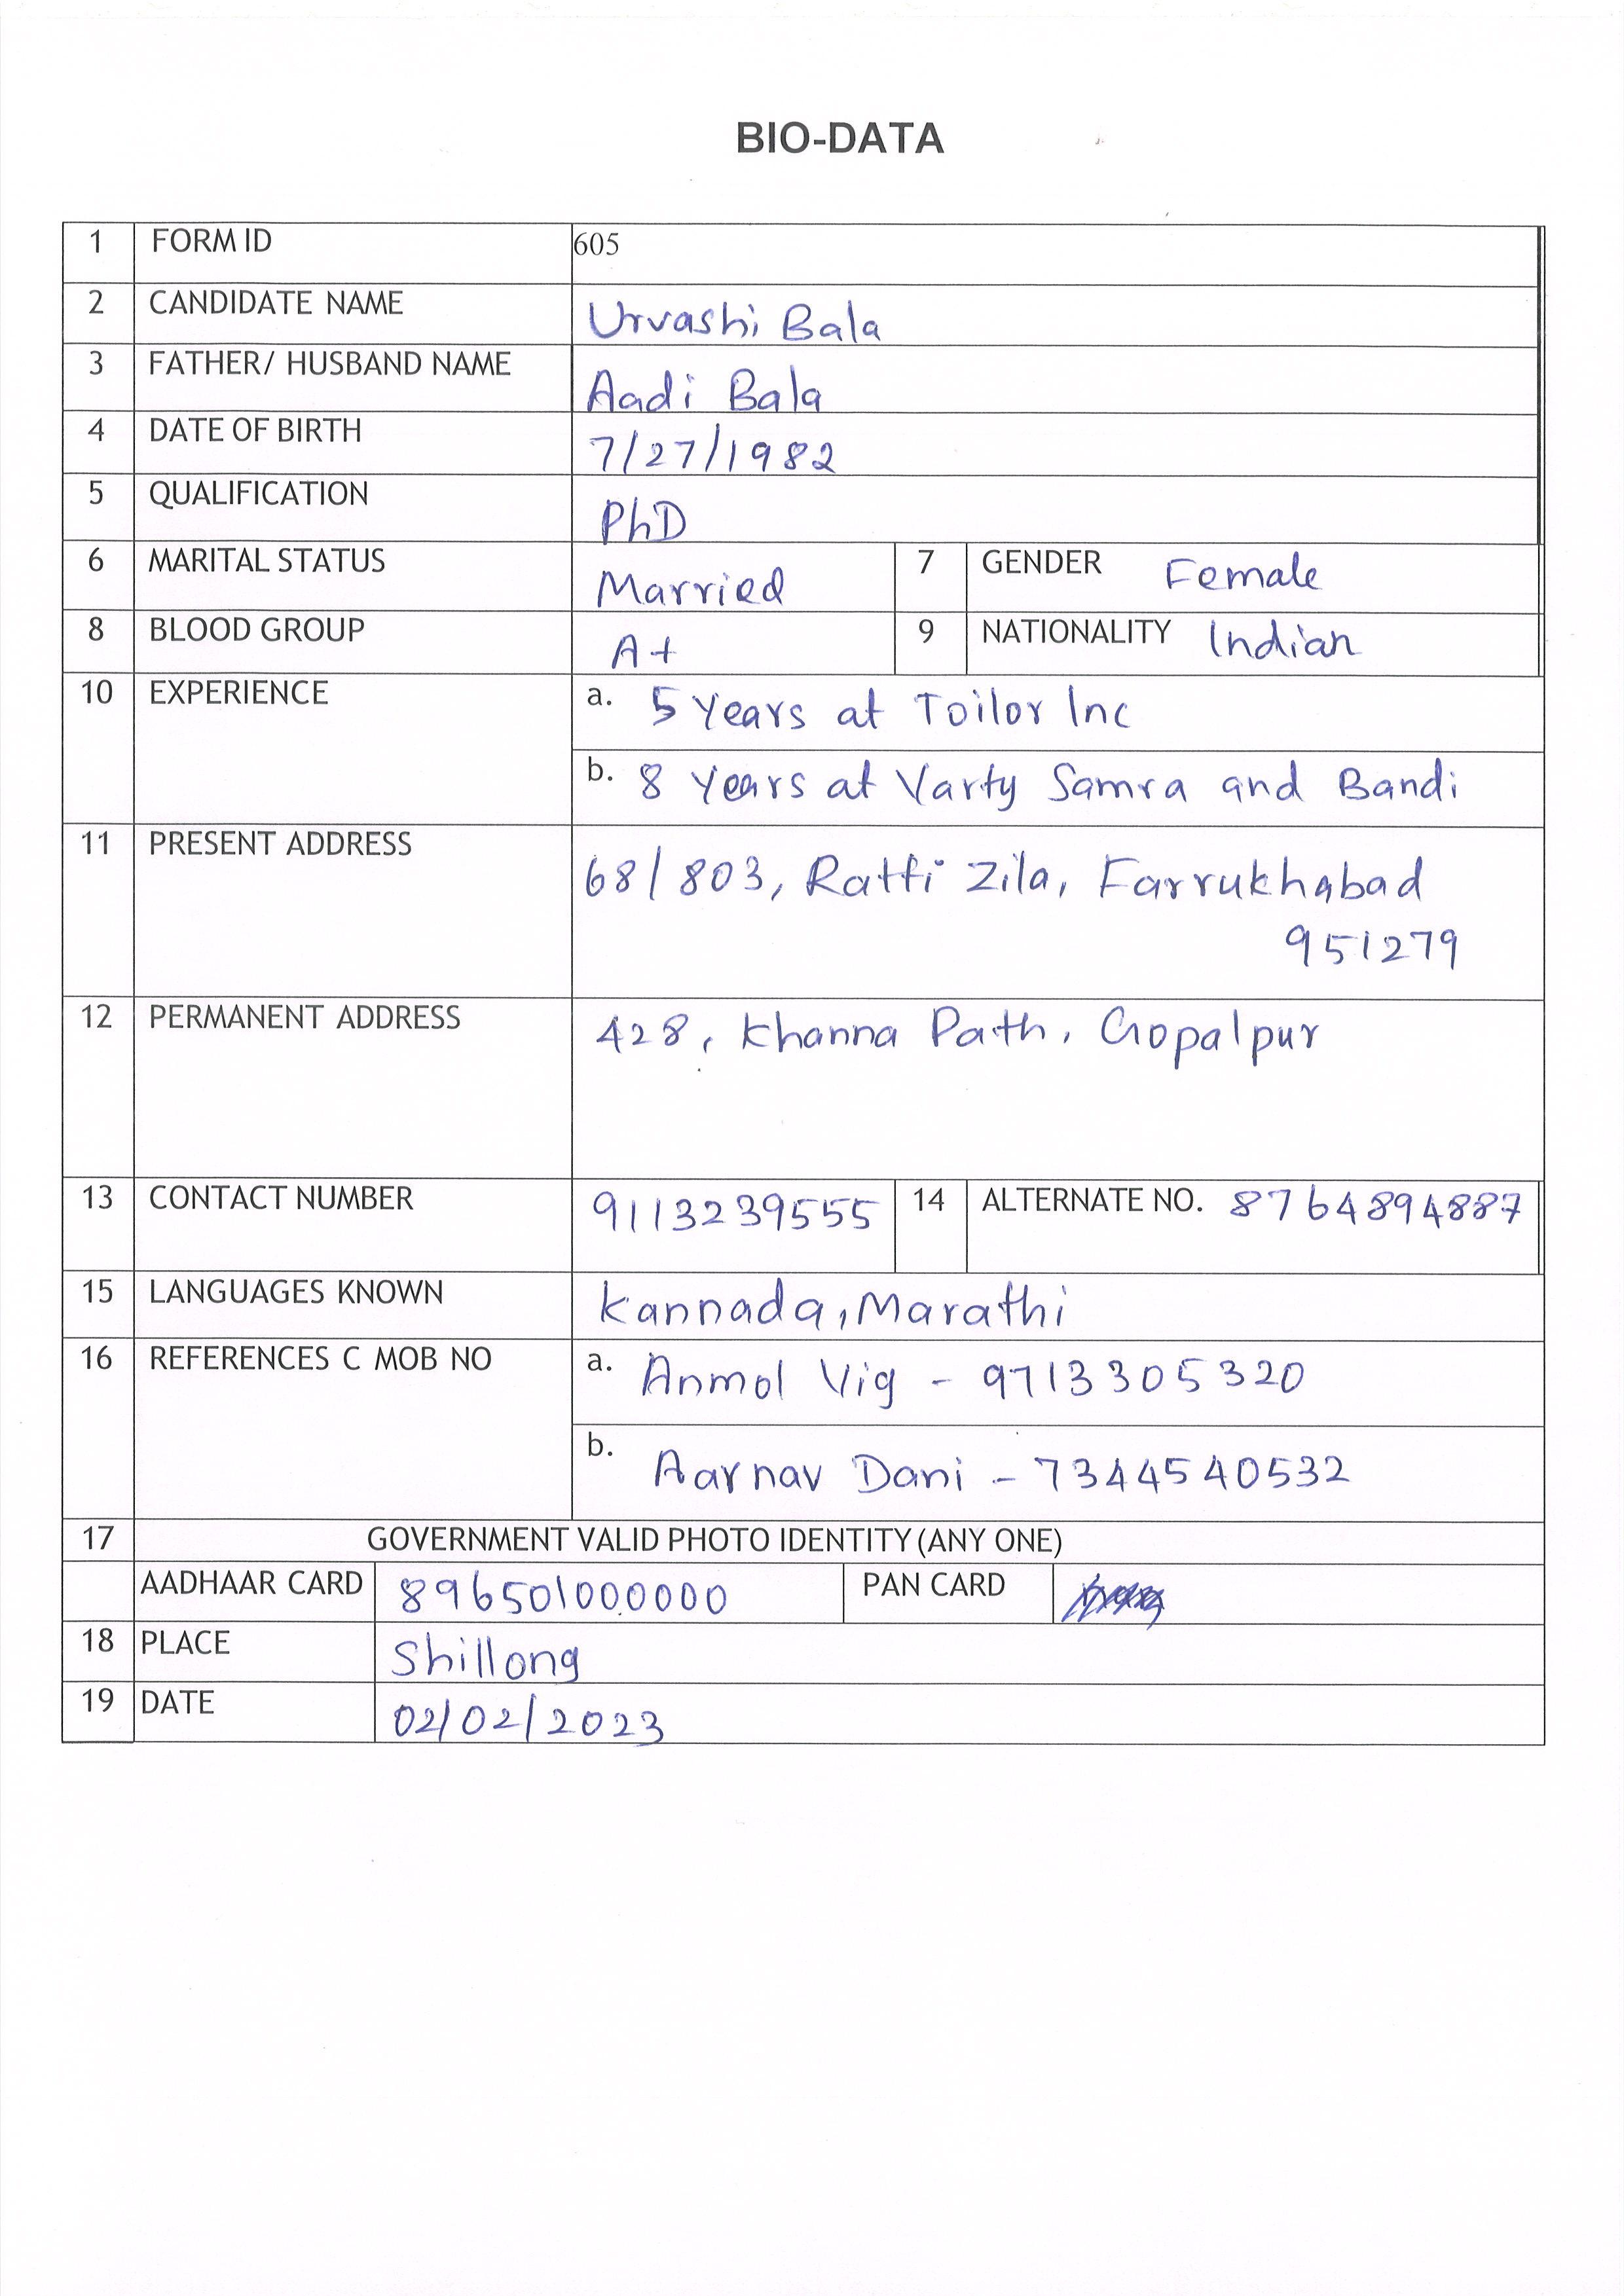 BIO-DATA
1 FORM ID 605
2 CANDIDATE NAME Urvashi Bala
3 FATHER/ HUSBAND NAME Aadi Bala
4 DATE OF BIRTH 7/27/1982
5 QUALIFICATION PhD
6 MARITAL STATUS Married 7 GENDER Female
8 BLOOD GROUP A+ 9 NATIONALITY Indian
10 EXPERIENCE a. 5 Years at Toilor Inc
b. 8 Years at Varty Samra and Bandi
11 PRESENT ADDRESS 68/803, Ratti Zila, Farrukhabad
951279
12 PERMANENT ADDRESS 428, Khanna Path, Gopalpur
13 CONTACT NUMBER 9113239555 14 ALTERNATE NO. 8764894887
15 LANGUAGES KNOWN Kannada, Marathi
16 REFERENCES C MOB NO a. Anmol Vig - 9713305320
b. Aarnav Dani - 7344540532
17 GOVERNMENT VALID PHOTO IDENTITY (ANY ONE)
AADHAAR CARD 896501000000 PAN CARD
18 PLACE Shillong
19 DATE 02/02/2023